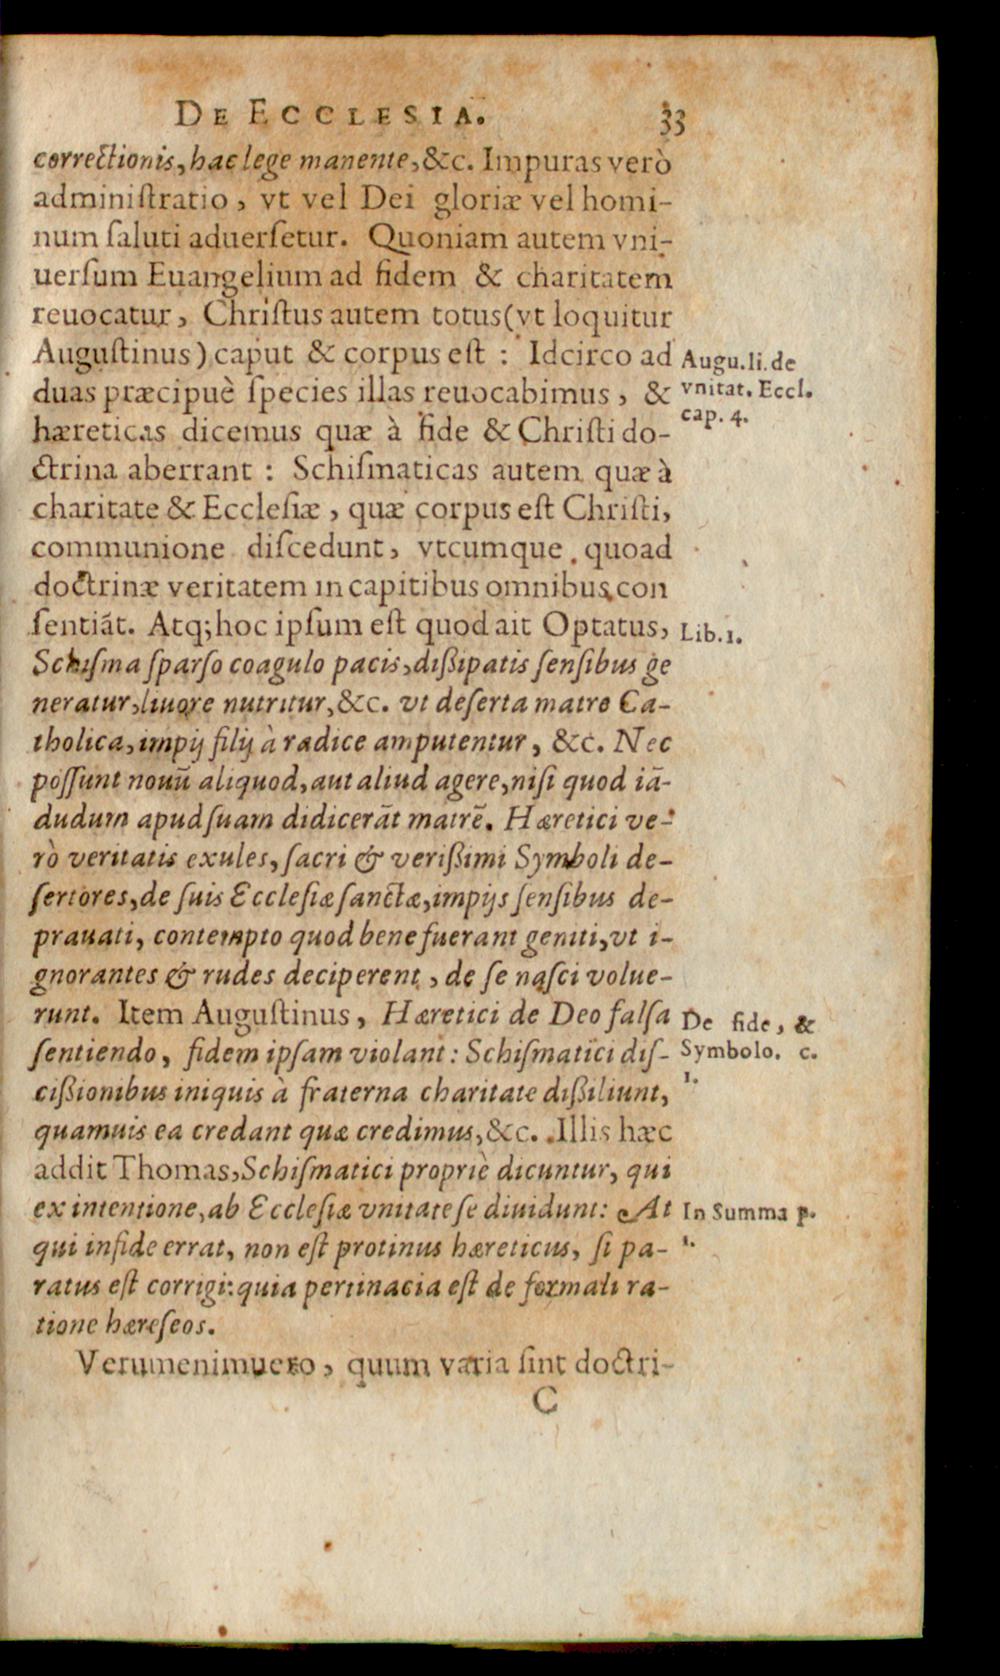 DE ECCLESIA. 33
correctionis, hac lege manente, &c. Impuras verò
administratio, vt vel Dei gloriæ vel homi-
num saluti aduersetur. Quoniam autem vni-
uersum Euangelium ad fidem & charitatem
reuocatur, Christus autem totus (vt loquitur
Augustinus) caput & corpus est : Idcirco ad
duas præcipuè species illas reuocabimus, &
hæreticas dicemus quæ à fide & Christi do-
ctrina aberrant : Schismaticas autem quæ à
charitate & Ecclesiæ, quæ corpus est Christi,
communione discedunt, vtcumque quoad
doctrinæ veritatem in capitibus omnibus con
sentiãt. Atq; hoc ipsum est quod ait Optatus,
Schisma sparso coagulo pacis, dißipatis sensibus ge
neratur, liuore nutritur, &c. vt deserta matre Ca-
tholica, impij filij à radice amputentur, &c. Nec
possunt nouũ aliquod, aut aliud agere, nisi quod iã-
dudum apud suam didicerãt matrẽ. Hæretici ve-
rò veritatis exules, sacri & verißimi Symboli de-
sertores, de suis Ecclesiæ sanctæ, impijs sensibus de-
prauati, contempto quod bene fuerant geniti, vt i-
gnorantes & rudes deciperent, de se nasci volue-
runt. Item Augustinus, Hæretici de Deo falsa
sentiendo, fidem ipsam violant : Schismatici dis-
cißionibus iniquis à fraterna charitate dißiliunt,
quamuis ea credant quæ credimus, &c. Illis hæc
addit Thomas, Schismatici propriè dicuntur, qui
ex intentione, ab Ecclesiæ vnitate se diuidunt: At
qui in fide errat, non est protinus hæreticus, si pa-
ratus est corrigi: quia pertinacia est de formali ra-
tione hæreseos.
Verumenimuero, quum varia sint doctri-
C
Augu. li. de
vnitat. Eccl.
cap. 4.
Lib. 1.
De fide, &
Symbolo. c.
1.
In Summa p.
1.